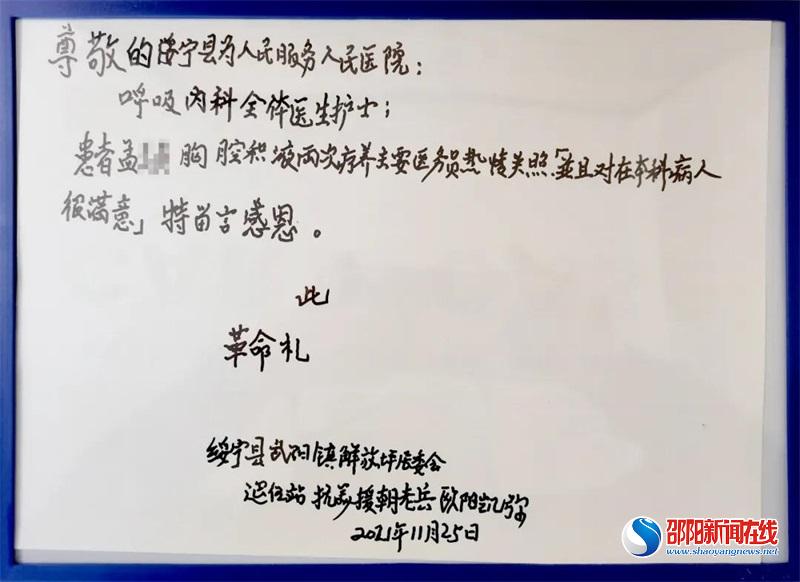 尊敬的绥宁县为人民服务人民医院：
呼吸内科全体医生护士；
患者孟 胸腔积液两次疗养主要医务员热情关照「並且对在本科病人
很满意」特留言感恩。
此
革命礼
绥宁县武阳镇解放坪居委会
退伍站 抗美援朝老兵 欧阳凯
2021年11月25日
邵阳新闻在线
www.shaoyangnews.net